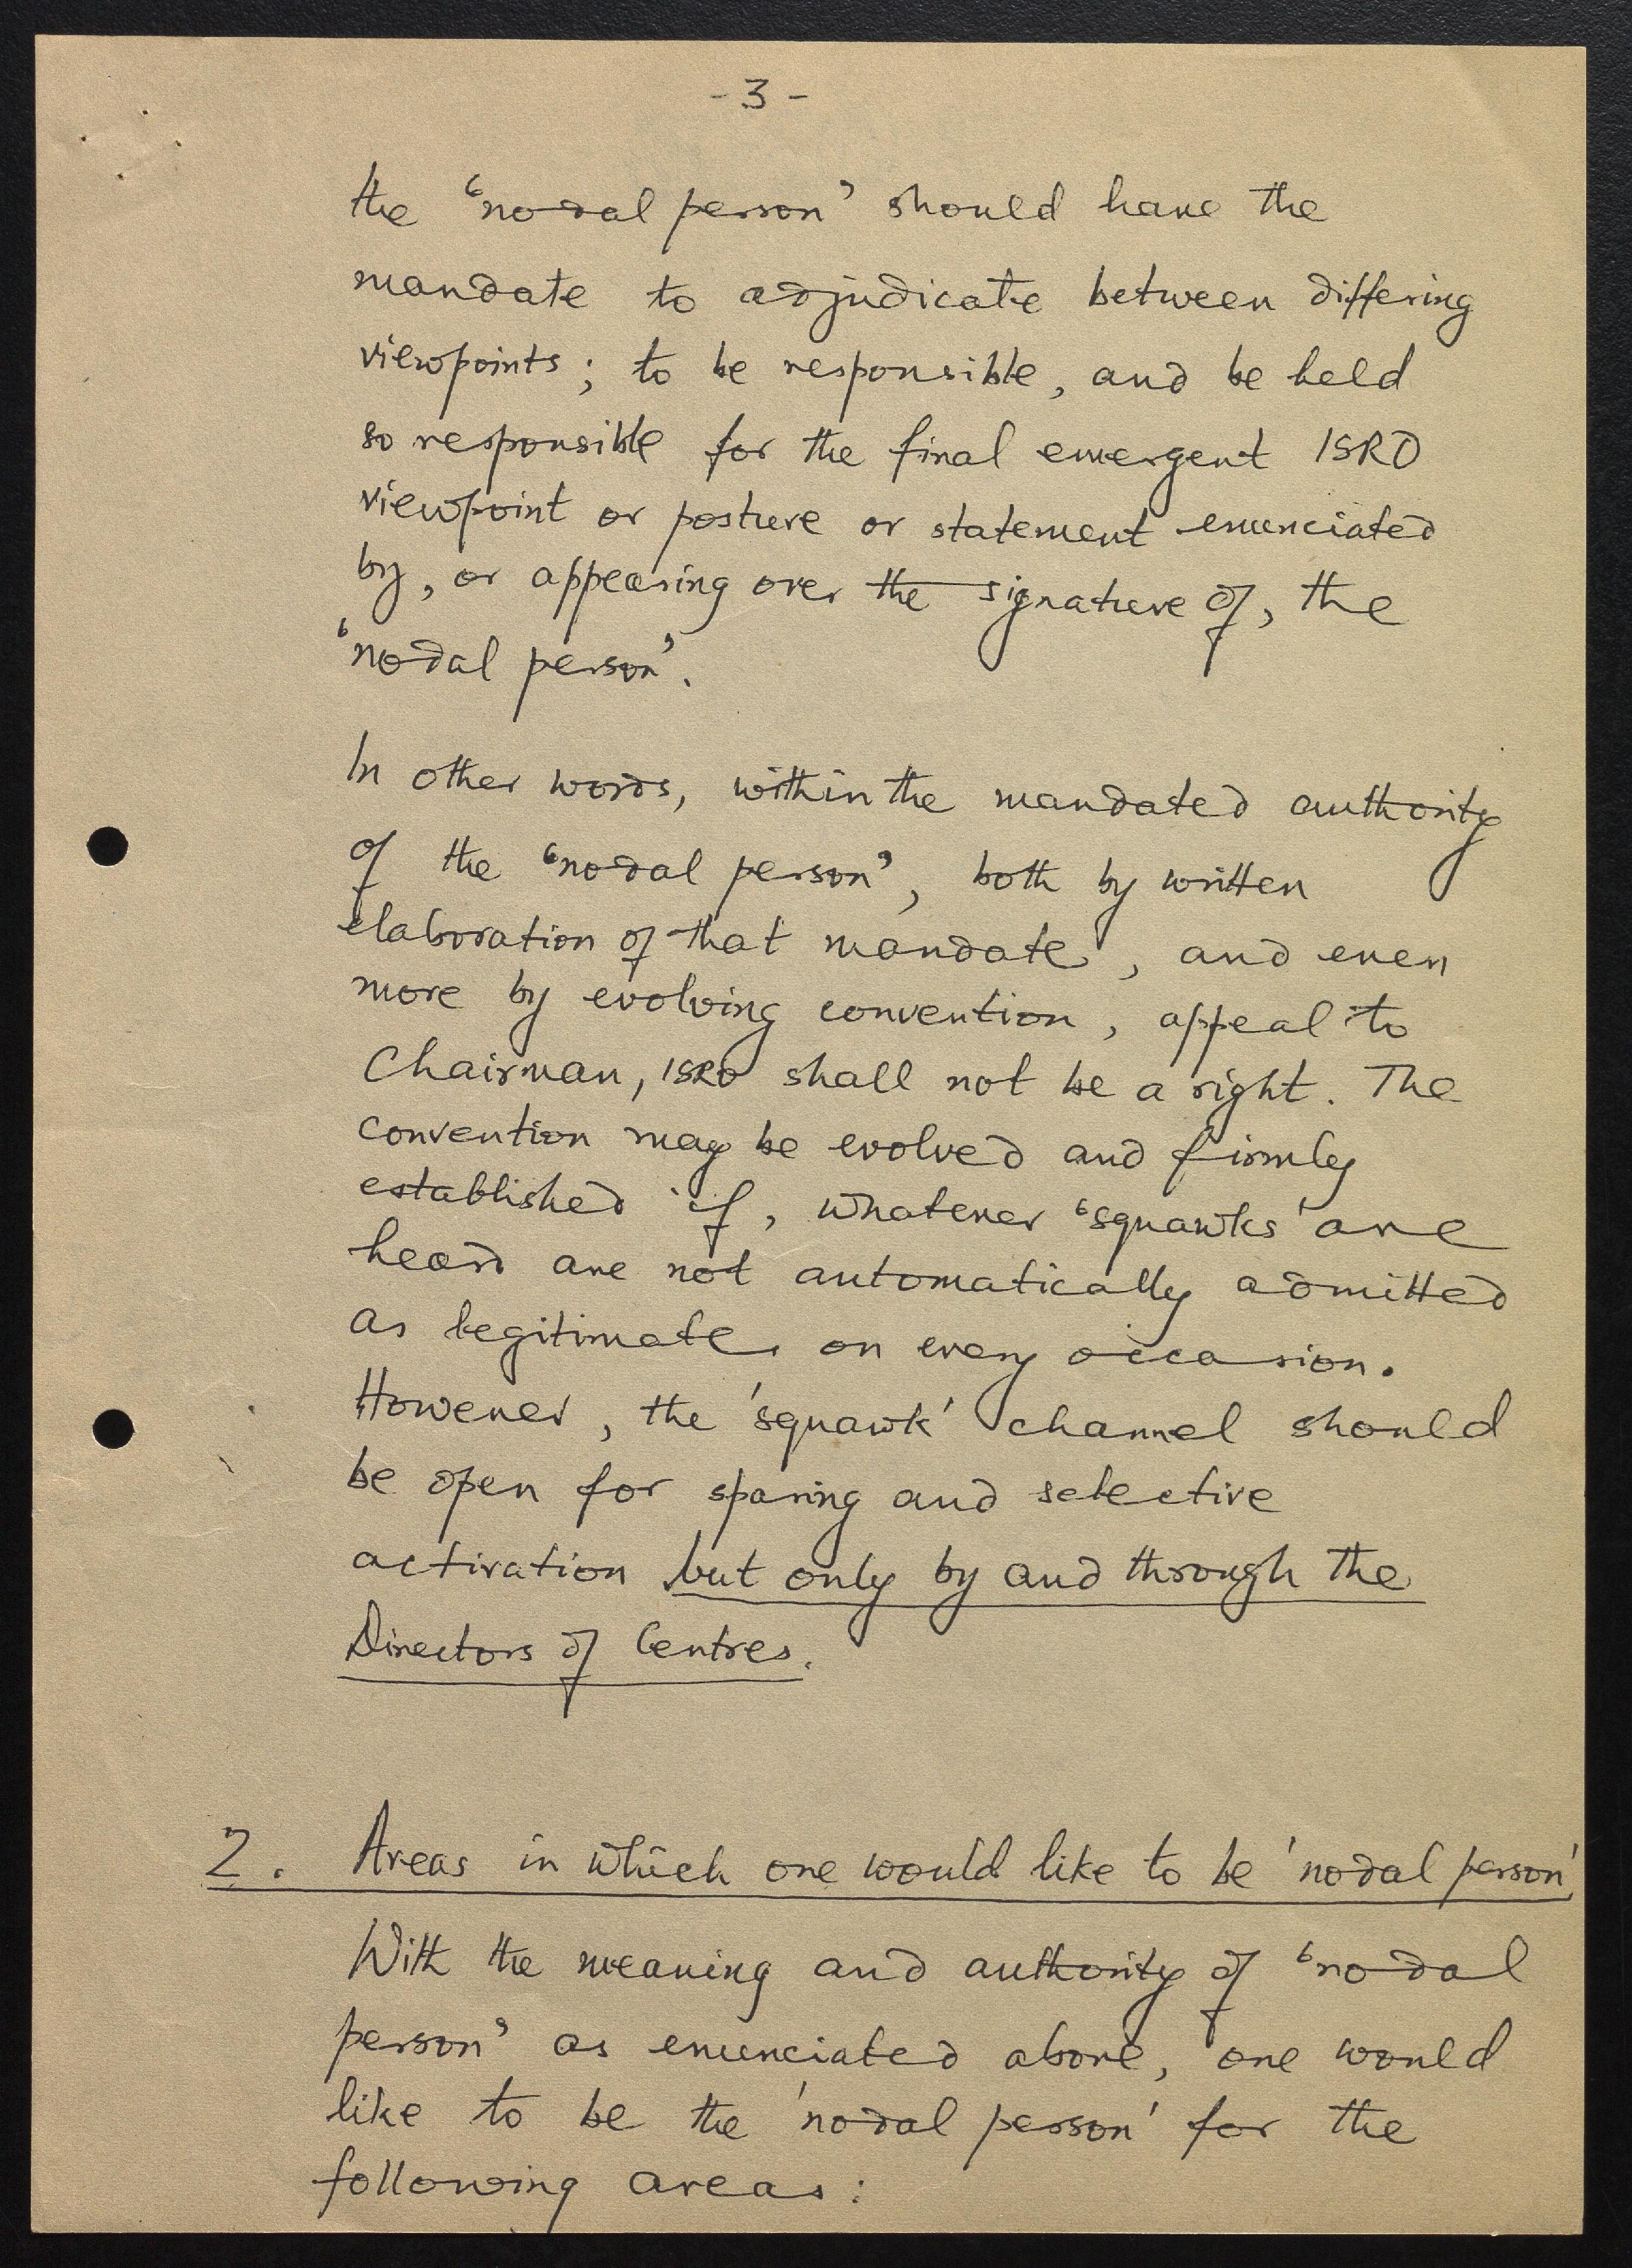 - 3 -
the 'nodal person' should have the
mandate to adjudicate between differing
viewpoints; to be responsible, and be held
so responsible for the final emergent ISRO
viewpoint or posture or statement enunciated
by, or appearing over the signature of, the
'nodal person'.
In other words, within the mandated authority
of the 'nodal person', both by written
elaboration of that mandate, and even
more by evolving convention, appeal to
Chairman, ISRO shall not be a right. The
convention may be evolved and firmly
established if, whatever 'squawks' are
heard are not automatically admitted
as legitimate on every occasion.
However, the 'squawk' channel should
be open for sparing and selective
activation but only by and through the
Directors of Centres.
2. Areas in which one would like to be 'nodal person'
With the meaning and authority of 'nodal
person' as enunciated above, one would
like to be the 'nodal person' for the
following areas: